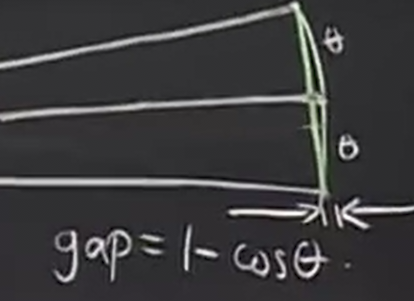 θ
θ
gap = 1 - cosθ.